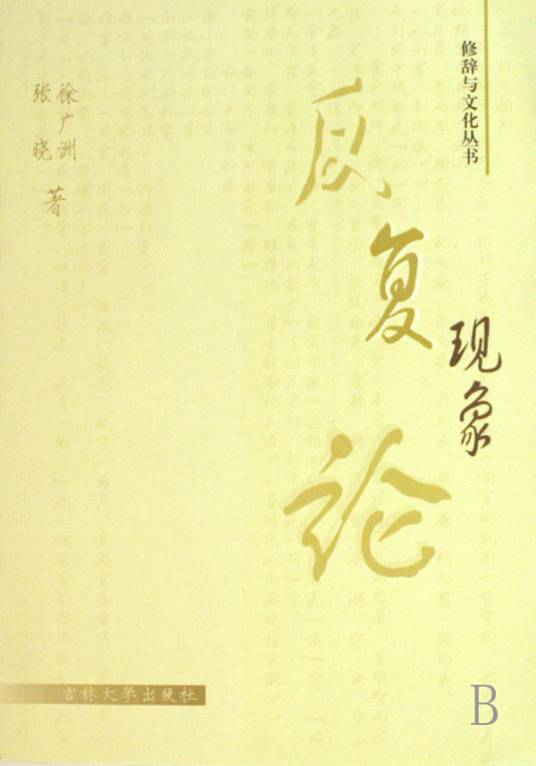 修辞与文化丛书
反复
现象
论
徐广洲
张晓
著
吉林大学出版社
B